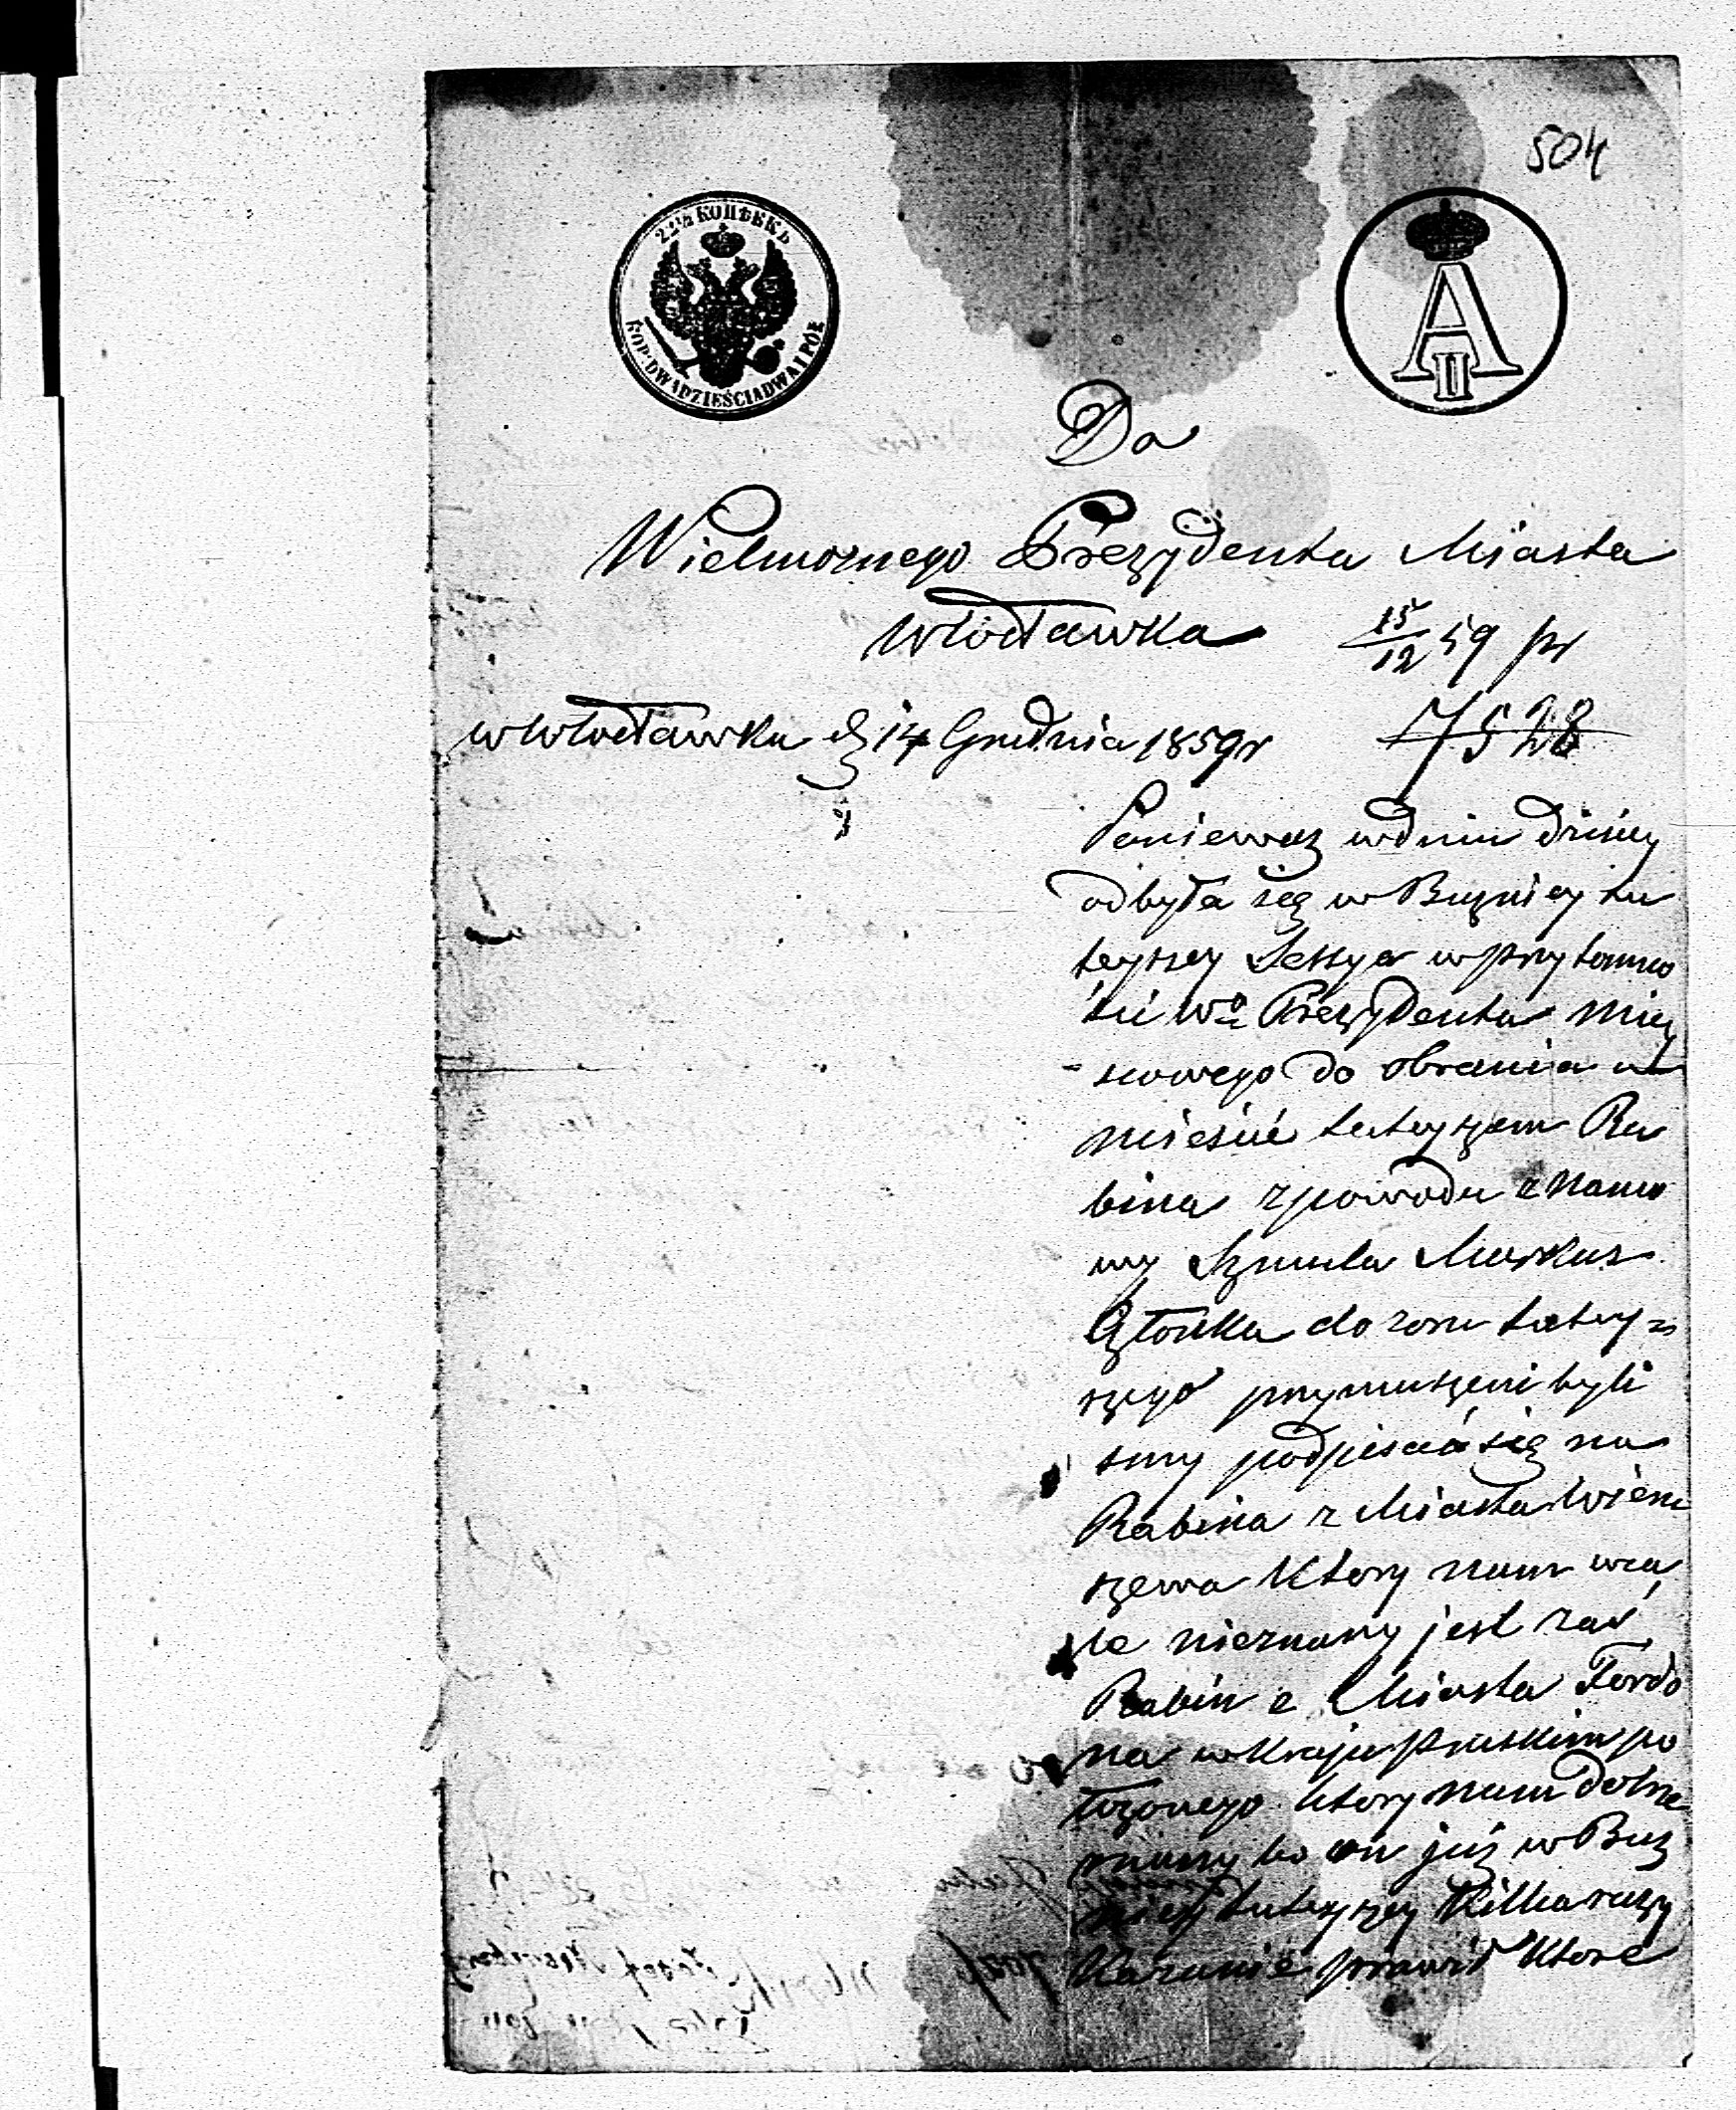 504
22½ КОПѢЕКЪ
KOP: DWADZIEŚCIA DWA I PÓŁ
A II
Do
Wielmoznego Prezydenta Miasta
Włocławka
15/12 59 pr
7528
w Włocławku d 14 Grudnia 1859 r
Poniewaz w dniu dzisiey
odbyła się w Buznicy tu
teyszey Sessya w przytomno
ści Wo Prezydenta miey
scowego do obrania w
mieście tuteyszem Ra
bina z powodu z namo
wy Szmula Markus
Członka dozoru tutey=
szego przymuszeni byli
smy podpisać się na
Rabina z Miasta Wieru
szewa Ktory nam wca
le nieznany jest zaś
Rabin z Miasta Fordo
na w Kraju Pruskim po
łozonego ktory nam dobrze
znany bo on już w Buz
nicy tuteyszey Kilka razy
Kazanie prawił Ktore